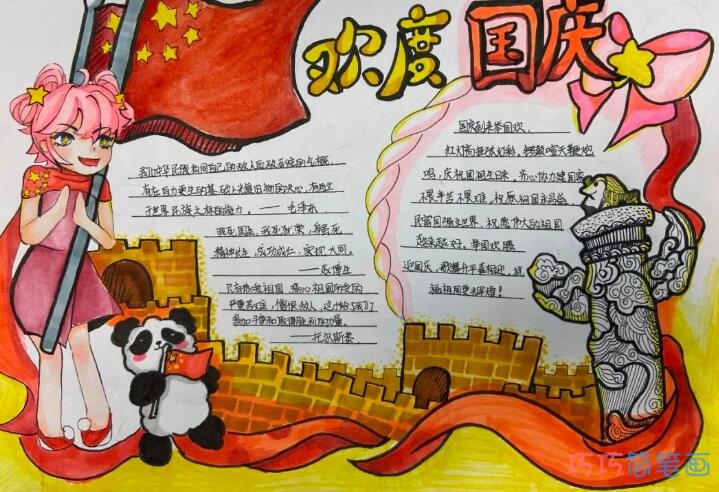 欢度国庆
我们中华民族有同自己的敌人血战到底的气概
有在自力更生的基础上光复旧物的决心，有自立
于世界民族之林的能力。——毛泽东
我死国生，我死犹荣，身虽死
精神长生，成功成仁，实现大同。
——赵博生
只有热爱祖国，痛心祖国所受的
严重苦难，憎恨敌人，这才给了我们
参加斗争和取得胜利的力量。
——托尔斯泰
国庆到来举国欢，
红灯高挂添幻彩，锣鼓喧天鞭炮
鸣，庆祝祖国生日来，齐心协力建国家
不畏辛苦不畏难，祝愿祖国永昌盛
民富国强立世界，祝愿伟大的祖国
越来越好，举国欢腾
迎国庆，歌舞升平喜相迎，祝
福祖国更辉煌！
巧巧简笔画